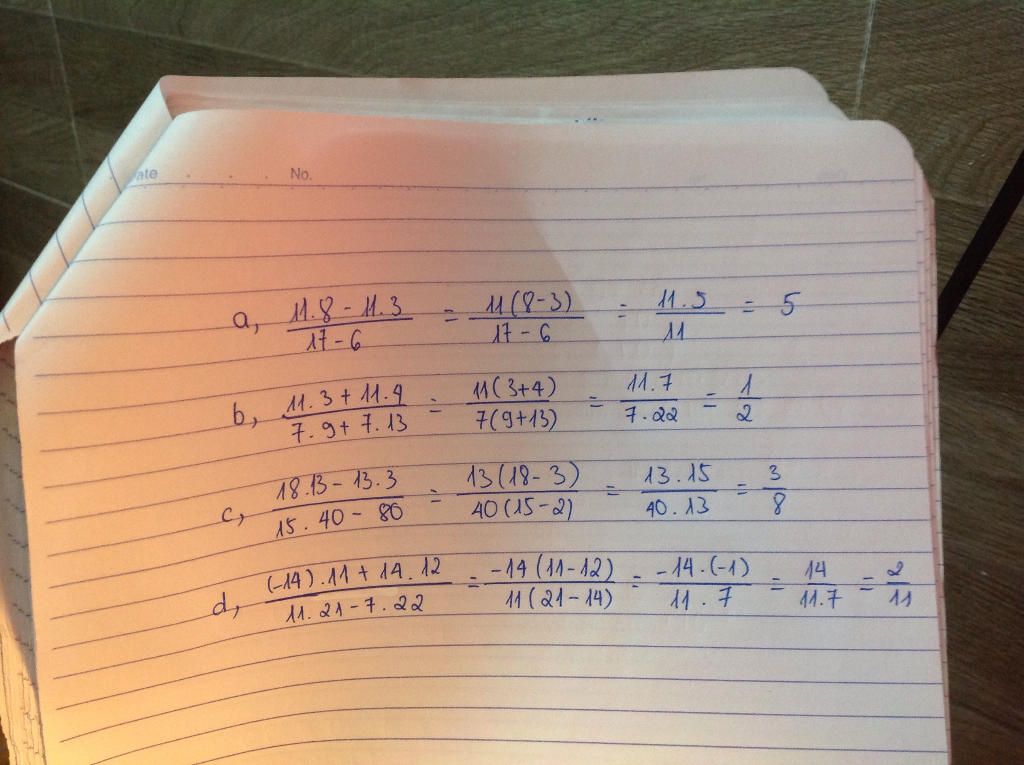 ate No.
a, (11.8 - 11.3)/(17 - 6) = 11(8-3)/(17 - 6) = 11.5/11 = 5
b, (11.3 + 11.4)/(7.9 + 7.13) = 11(3+4)/7(9+13) = 11.7/7.22 = 1/2
c, (18.13 - 13.3)/(15.40 - 80) = 13(18-3)/40(15-2) = 13.15/40.13 = 3/8
d, ((-14).11 + 14.12)/(11.21 - 7.22) = -14(11-12)/11(21-14) = -14.(-1)/11.7 = 14/11.7 = 2/11